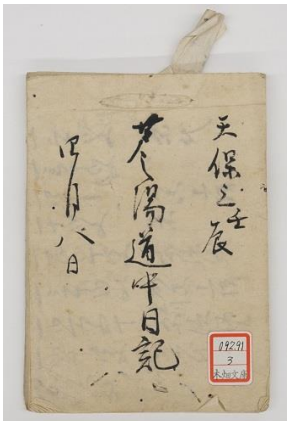 天保三壬辰
芦之湯道中日記
四月八日
09291
3
文庫